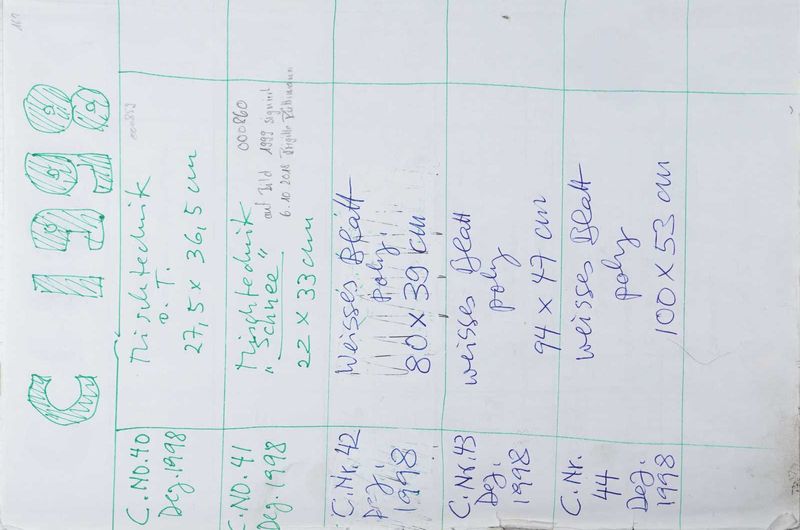 161
C 1998
C.NO.40
Dez.1998
Mischtechnik
o.T.
27,5 x 36,5 cm
C.NO.41
Dez.1998
Mischtechnik
"Schnee"
22 x 33 cm
000860
auf Bild 1999 signiert
6.10.2018 Brigitte
C.Nr.42
Dez.
1998
Weisses Blatt
poly.
80 x 39 cm
C.Nr.43
Dez.
1998
weisses Blatt
poly
94 x 47 cm
C.Nr.
44
Dez.
1998
weisses Blatt
poly
100 x 53 cm